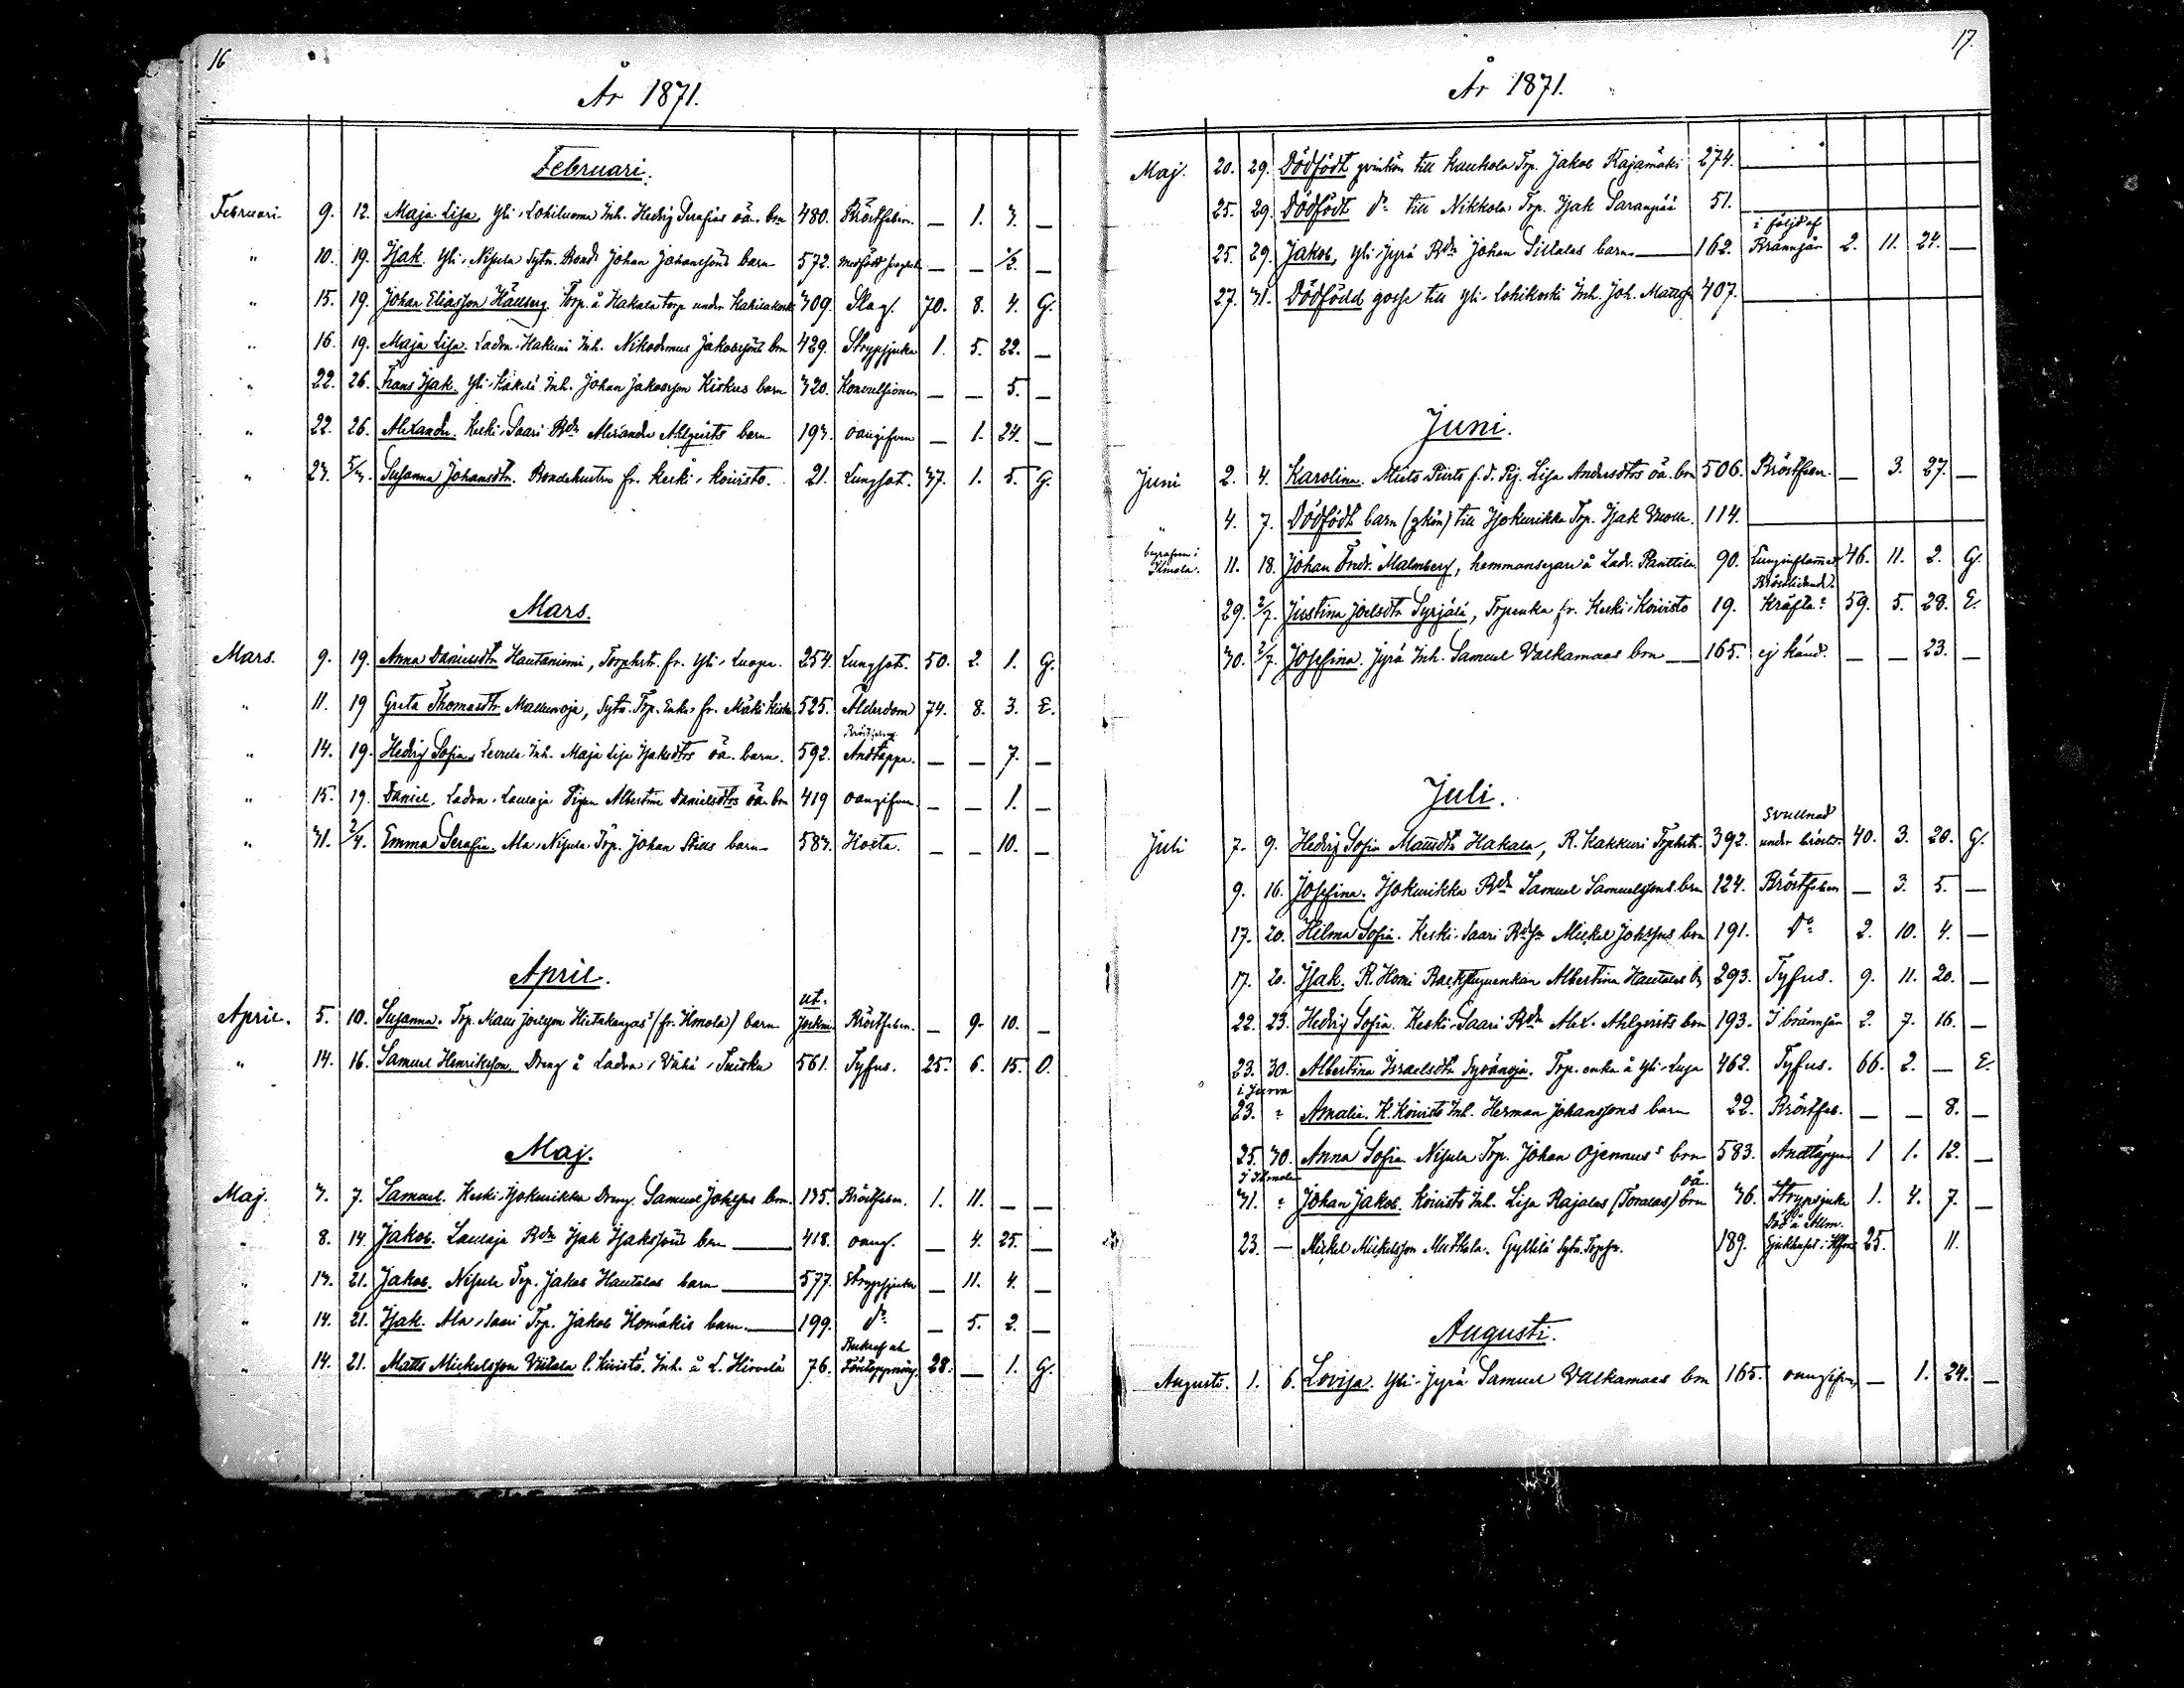 16
År 1871.
Februari.
Februari 9. 12. Maja Lisa, Yli-Lohiluoma Inh. Hedvig Serafias oä. brn 480. Bröstfebern. — 1. 3. —
" 10. 19. Isak. Yli-Nisula Sytn. Bonde Johan Johanssons barn 572. medfödd — — ½. —
" 15. 19. Johan Eliasson Hällberg. Torp. å Hakala torp under 309. Slag. 70. 8. 4. G.
" 16. 19. Maja Lisa. Ladva-Hakuni Inh. Nikodemus Jakobssons brn 429. Strypsjuka 1. 5. 22. —
" 22. 26. Frans Isak. Yli-Käkelä Inh. Johan Jakobsson Kiskus barn 320. Konvulsioner — — 5. —
" 22. 26. Alexander. Keski-Saari Bdn Alexander Ahlqvists barn 193. oangifven — 1. 24. —
" 23. 5/3. Susanna Johansdtr. Bondehustru fr. Keski-Koivisto. 21. Lungsot. 37. 1. 5. G.
Mars.
Mars. 9. 19. Anna Danielsdtr Hautaniemi, Torphstr. fr. Yli-Luopa. 254. Lungsot. 50. 2. 1. G.
" 11. 19 Greta Thomasdtr Mallenoja, Sytn. Torp. Enka fr. Mäki 525. Ålderdom 74. 8. 3. E.
" 14. 19. Hedvig Sofia. Levula Inh. Maja Lisa Isaksdtrs oä. barn. 592. Andtäppa. — — 7. —
" 15. 19. Daniel. Ladva-Laulaja Pigan Albertina Danielsdtrs oä. brn 419 oangifven — — 1. —
" 31. 2/4. Emma Serafia. Ala-Nisula Torp. Johan Stills barn 583. Hosta. — — 10. —
April.
April. 5. 10. Susanna. Torp. Matts Joelsson Hietakangas (fr. Ilmola) barn ut. socknes Bröstfebern. — 9. 10. —
" 14. 16. Samuel Henriksson. Dreng å Ladva-Vähä-Tuisku 561. Tyfus. 25. 6. 15. O.
Maj.
Maj. 3. 7. Samuel. Keski-Jokurikka Dreng. Samuel Johssons brn. 135. Bröstfebern. 1. 11. — —
" 8. 14. Jakob. Laulaja Bdn Isak Isakssons brn — 418. oang. — 4. 25. —
" 13. 21. Jakob. Nisula Torp. Jakob Hautalas barn — 577. Strypsjuka — 11. 4. —
" 14. 21. Isak. Ala-Saari Torp. Jakob Homäkis barn. — 199. do — 5. 2. —
" 14. 21. Matts Mickelsson Viitala l. Kivistö. Inh. å L. Hirvelä 76. Förstoppning. 28. — 1. G.
17.
År 1871.
Maj. 20. 29. Dödfödt qvinkön till Kaukola Torp. Jakob Rajamäki 274. —
25. 29. Dödfödt do till Nikkola Torp. Isak Saranpää 51. —
25. 29. Jakob, Yli-Jyrä Bdn Johan Sillalas barn — 162. i följd af Brännsår 2. 11. 24. —
27. 31. Dödfödd gosse till Yli-Lohikoski Inh. Joh. Mattss. 407. —
Juni.
Juni 2. 4. Karolina. Mieto-Piirto f.d. Pig. Lisa Andersdtrs oä. brn 506. Bröstfebern. — 3. 27. —
" 4. 7. Dödfödt barn (qkön) till Jokurikka Torp. Isak 114. —
begrafven i Ilmola. 11. 18. Johan Fredr. Malmberg, hemmansegare å Ladv. Panttila. 90. Lunginflammat. 46. 11. 2. G.
29. 2/7. Justina Joelsdtr Syrjälä, Torpenka fr. Keski-Koivisto 19. Bröstlidande. Kräfta? 59. 5. 28. E.
30. 2/7. Josefina. Jyrä Inh. Samuel Valkamaas brn — 165. ej känd. — — 23. —
Juli.
Juli 7. 9. Hedvig Sofia Mattsdtr Hakala, R. Kakkuri Torphstr. 392. Svullnad under bröstet. 40. 3. 20. G.
9. 16. Josefina. Jokurikka Bdn Samuel Samuelssons brn 124. Bröstfebern — 3. 5. —
17. 20. Hilma Sofia. Keski-Saari Bdn Mickel Johssons brn 191. Do 2. 10. 4. —
17. 20. Isak. R. Homi Backstuguenkan Albertina Hautalas b. 293. Tyfus. 9. 11. 20. —
22. 23. Hedvig Sofia. Keski-Saari Bdn Alex. Ahlqvists brn 193. I brännsår 2. 7. 16. —
23. 30. Albertina Israelsdtr Syvänoja. Torp. enka å Yli-Luopa 462. Tyfus. 66. 2. — E.
i Jurva
23. " Amalia. K. Koivisto Inh. Herman Johanssons barn 22. Bröstfeb. — — 8. —
25. 30. Anna Sofia Nisula Torp. Johan Ojennus' brn 583. Andtäppa 1 1. 12. —
i Ilmola
31. " Johan Jakob. Koivisto Inh. Lisa Rajalas (Toralas) oä brn 36. Strypsjuka 1. 4. 7. —
23. — Mickel Mickelsson Mustola. Gyllilä Sytn. Torpsn. 189. Död å Allm. Sjukhuset i Hfors 25. 11.
Augusti.
Augusti. 1. 6. Lovisa. Yli-Jyrä Samuel Valkamaas brn 165. oangifven — 1. 24. —